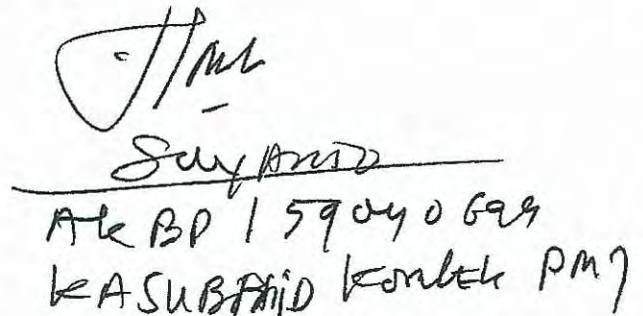 Suyanto
AKBP / 59040699
KASUBBID Komlek PMJ